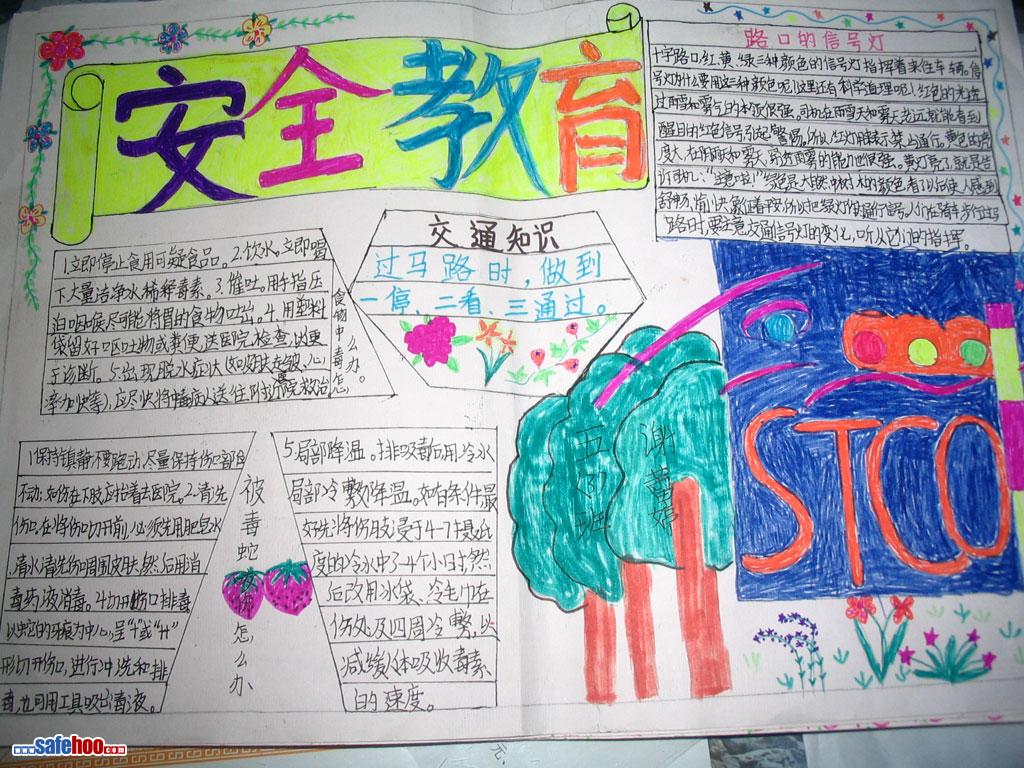 安全教育
路口的信号灯
十字路口,红、黄、绿三种颜色的信号灯指挥着来往车辆。信
号灯为什么要用这三种颜色呢,这里还有科学道理呢!红色的光透
过雨雪和雾气的本领很强,司机在雨雪天和雾天老远就能看到
醒目的红色信号引起警惕。所以红灯用来表示禁止通行。黄色
路时,要注意交通信号灯的变化,听从它们的指挥。
交通知识
过马路时,做到
一停、二看、三通过。
食物中毒怎么办。
1.立即停止食用可疑食品。2.饮水。立即喝
下大量洁净水稀释毒素。3.催吐。用手指压
迫咽喉尽可能将胃的食物吐出。4.用塑料
袋留好呕吐物或粪便,送医院检查,以便
于诊断。5.出现脱水症状
应尽快将中毒病人送往附近医院救治。
被毒蛇咬伤怎么办
1.保持镇静不要跑动,尽量保持伤口部位
不动,如伤在下肢应抬着去医院。2.清洗
伤口。在将伤口切开前,必须先用肥皂水
清水清洗伤口周围皮肤,然后用消
毒药液消毒。4.切开伤口排毒
以蛇的牙痕为中心,呈“十”或“廾”
形切开伤口,进行冲洗和排
毒,也可用工具吸出毒液。
5.局部降温。排吸毒后用冷水
局部冷敷降温。如有条件最
好先将伤肢浸于4-7摄氏
度的冷水中3-4个小时,然
后改用冰袋、冷毛巾在
伤处及四周冷敷,以
减缓人体吸收毒素
的速度。
五(3)班
谢黄婷
STCO
www.safehoo.com